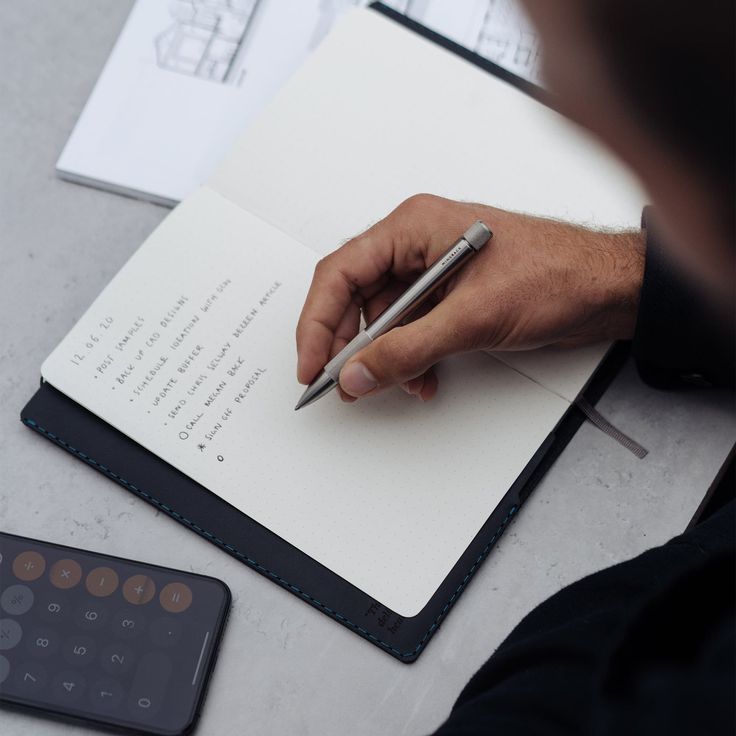 12.06.20
• POST SAMPLES
• BACK UP CAD DESIGNS
• SCHEDULE IDEATION WITH
• UPDATE BUFFER
• SEND CHRIS SELWAY ARTICLE
○ CALL MEGAN BACK
* SIGN OFF PROPOSAL
○
WINGBACK
÷ × − + =
9 6 3 .
8 5 2
7 4 1 0
%